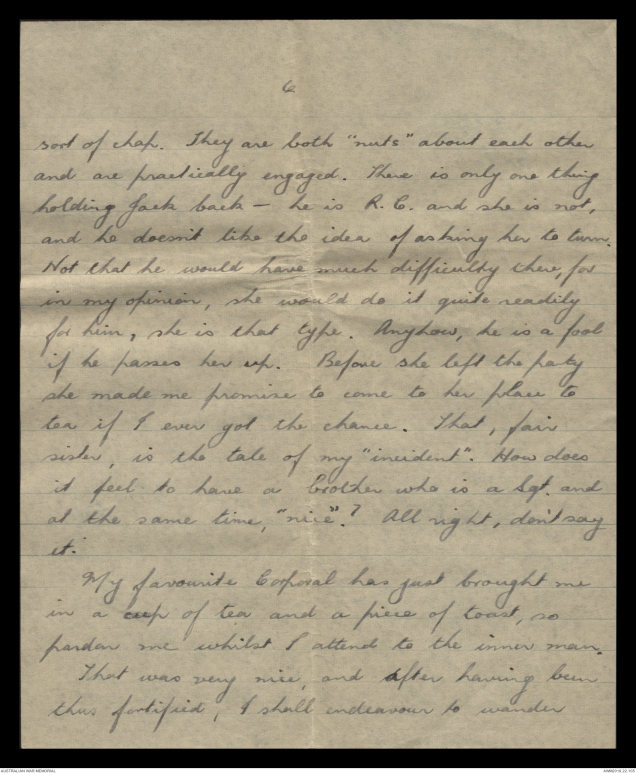 6
sort of chap. They are both "nuts" about each other
and are practically engaged. There is only one thing
holding Jack back — he is R.C. and she is not,
and he doesn't like the idea of asking her to turn.
Not that he would have much difficulty there, for
in my opinion, she would do it quite readily
for him, she is that type. Anyhow, he is a fool
if he passes her up. Before she left the party
she made me promise to come to her place to
tea if I ever got the chance. That, fair
sister, is the tale of my "incident". How does
it feel to have a brother who is a Sgt. and
at the same time, "nice"? All right, don't say
it.
My favourite Corporal has just brought me
in a cup of tea and a piece of toast, so
pardon me whilst I attend to the inner man.
That was very nice, and after having been
thus fortified, I shall endeavour to wander
AUSTRALIAN WAR MEMORIAL